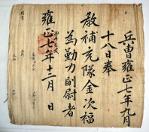 兵曹雍正七年九月
十八日奉
教補充隊金次福
為勤力副尉者
雍正七年十二月 日